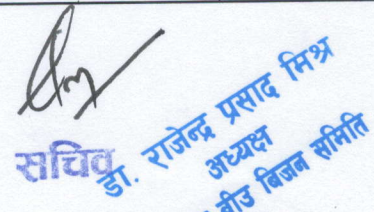 सचिव
डा. राजेन्द्र प्रसाद मिश्र
अध्यक्ष
वीउ बिजन समिति